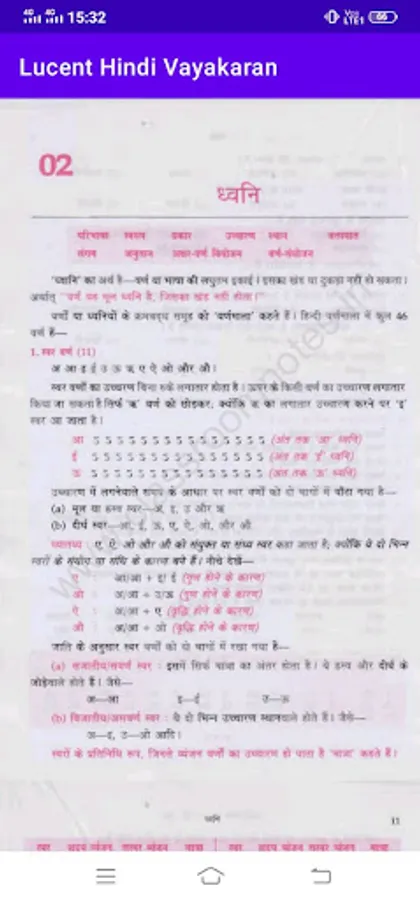 15:32
Lucent Hindi Vayakaran
02
ध्वनि
परिभाषा स्वरूप प्रकार उच्चारण स्थान बलाघात
संगम अनुतान अक्षर-वर्ण वियोजन वर्ण-संयोजन
'ध्वनि' का अर्थ है—वर्ण या भाषा की लघुतम इकाई। इसका खंड या टुकड़ा नहीं हो सकता।
अर्थात् "वर्ण वह मूल ध्वनि है, जिसका खंड नहीं होता।"
वर्णों या ध्वनियों के क्रमबद्ध समूह को 'वर्णमाला' कहते हैं। हिन्दी वर्णमाला में कुल 46
वर्ण हैं—
1. स्वर वर्ण (11)
अ आ इ ई उ ऊ ऋ ए ऐ ओ और औ।
स्वर वर्णों का उच्चारण बिना रुके लगातार होता है। ऊपर के किसी वर्ण का उच्चारण लगातार
किया जा सकता है सिर्फ 'ऋ' वर्ण को छोड़कर, क्योंकि ऋ का लगातार उच्चारण करने पर 'इ'
स्वर आ जाता है।
आ ऽ ऽ ऽ ऽ ऽ ऽ ऽ ऽ ऽ ऽ ऽ ऽ ऽ ऽ ऽ ऽ (अंत तक 'आ' ध्वनि)
ई ऽ ऽ ऽ ऽ ऽ ऽ ऽ ऽ ऽ ऽ ऽ ऽ ऽ ऽ ऽ ऽ (अंत तक 'ई' ध्वनि)
ऊ ऽ ऽ ऽ ऽ ऽ ऽ ऽ ऽ ऽ ऽ ऽ ऽ ऽ ऽ ऽ ऽ (अंत तक 'ऊ' ध्वनि)
उच्चारण में लगनेवाले समय के आधार पर स्वर वर्णों को दो भागों में बाँटा गया है—
(a) मूल या ह्रस्व स्वर—अ, इ, उ और ऋ
(b) दीर्घ स्वर—आ, ई, ऊ, ए, ऐ, ओ, और औ
ध्यातव्य : ए, ऐ, ओ और औ को संयुक्त या संध्य स्वर कहा जाता है; क्योंकि ये दो भिन्न
स्वरों के संयोग या संधि के कारण बने हैं। नीचे देखें—
ए : आ/अा + इ/ ई (गुण होने के कारण)
ओ : अ/आ + उ/ऊ (गुण होने के कारण)
ऐ : अ/आ + ए (वृद्धि होने के कारण)
औ : अ/आ + ओ (वृद्धि होने के कारण)
जाति के अनुसार स्वर वर्णों को दो भागों में रखा गया है—
(a) सजातीय/सवर्ण स्वर : इसमें सिर्फ मात्रा का अंतर होता है। ये ह्रस्व और दीर्घ के
जोड़ेवाले होते हैं। जैसे—
अ—आ इ—ई उ—ऊ
(b) विजातीय/असवर्ण स्वर : ये दो भिन्न उच्चारण स्थानवाले होते हैं। जैसे—
अ—इ, उ—ओ आदि।
स्वरों के प्रतिनिधि रूप, जिनसे व्यंजन वर्णों का उच्चारण हो पाता है 'मात्रा' कहते हैं।
ध्वनि 11